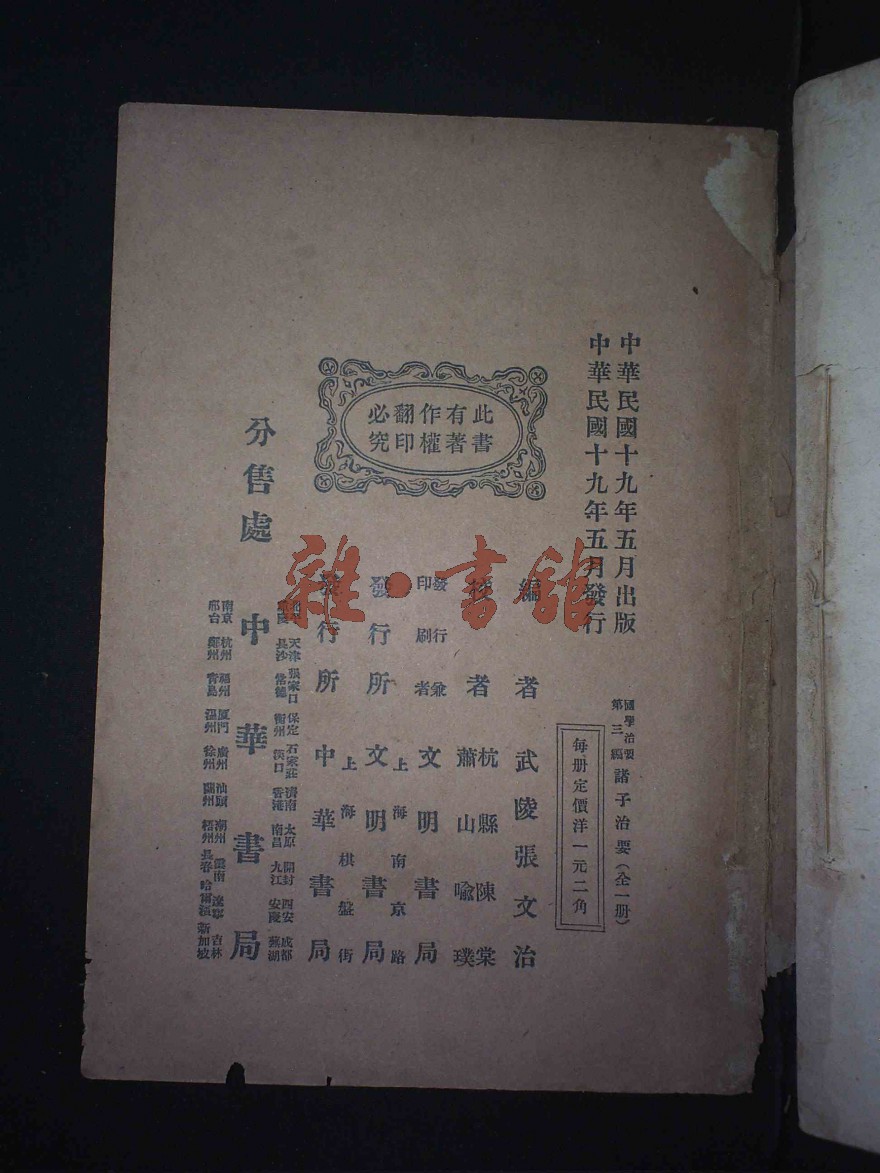 中華民國十九年五月出版
中華民國十九年五月發行
國學治要
第三編
諸子治要（全一册）
每册定價洋一元二角
此書
有著
作權
翻印
必究
編者 武陵張文治
校者 杭縣陳棠
蕭山喩璞
發行兼
印刷者 文明書局
上海南京路
發行所 文明書局
上海棋盤街
發行所 中華書局
分售處 中華書局
天津 張家口 保定 石家莊 濟南 太原 開封 西安 成都
長沙 常德 衡州 漢口 香港 南昌 九江 安慶 蕪湖
南京 杭州 福州 厦門 廣州 汕頭 潮州 雲南 遼寧 吉林
邢台 鄭州 青島 溫州 徐州 蘭州 梧州 長春 哈爾濱 新加坡
雜·書館